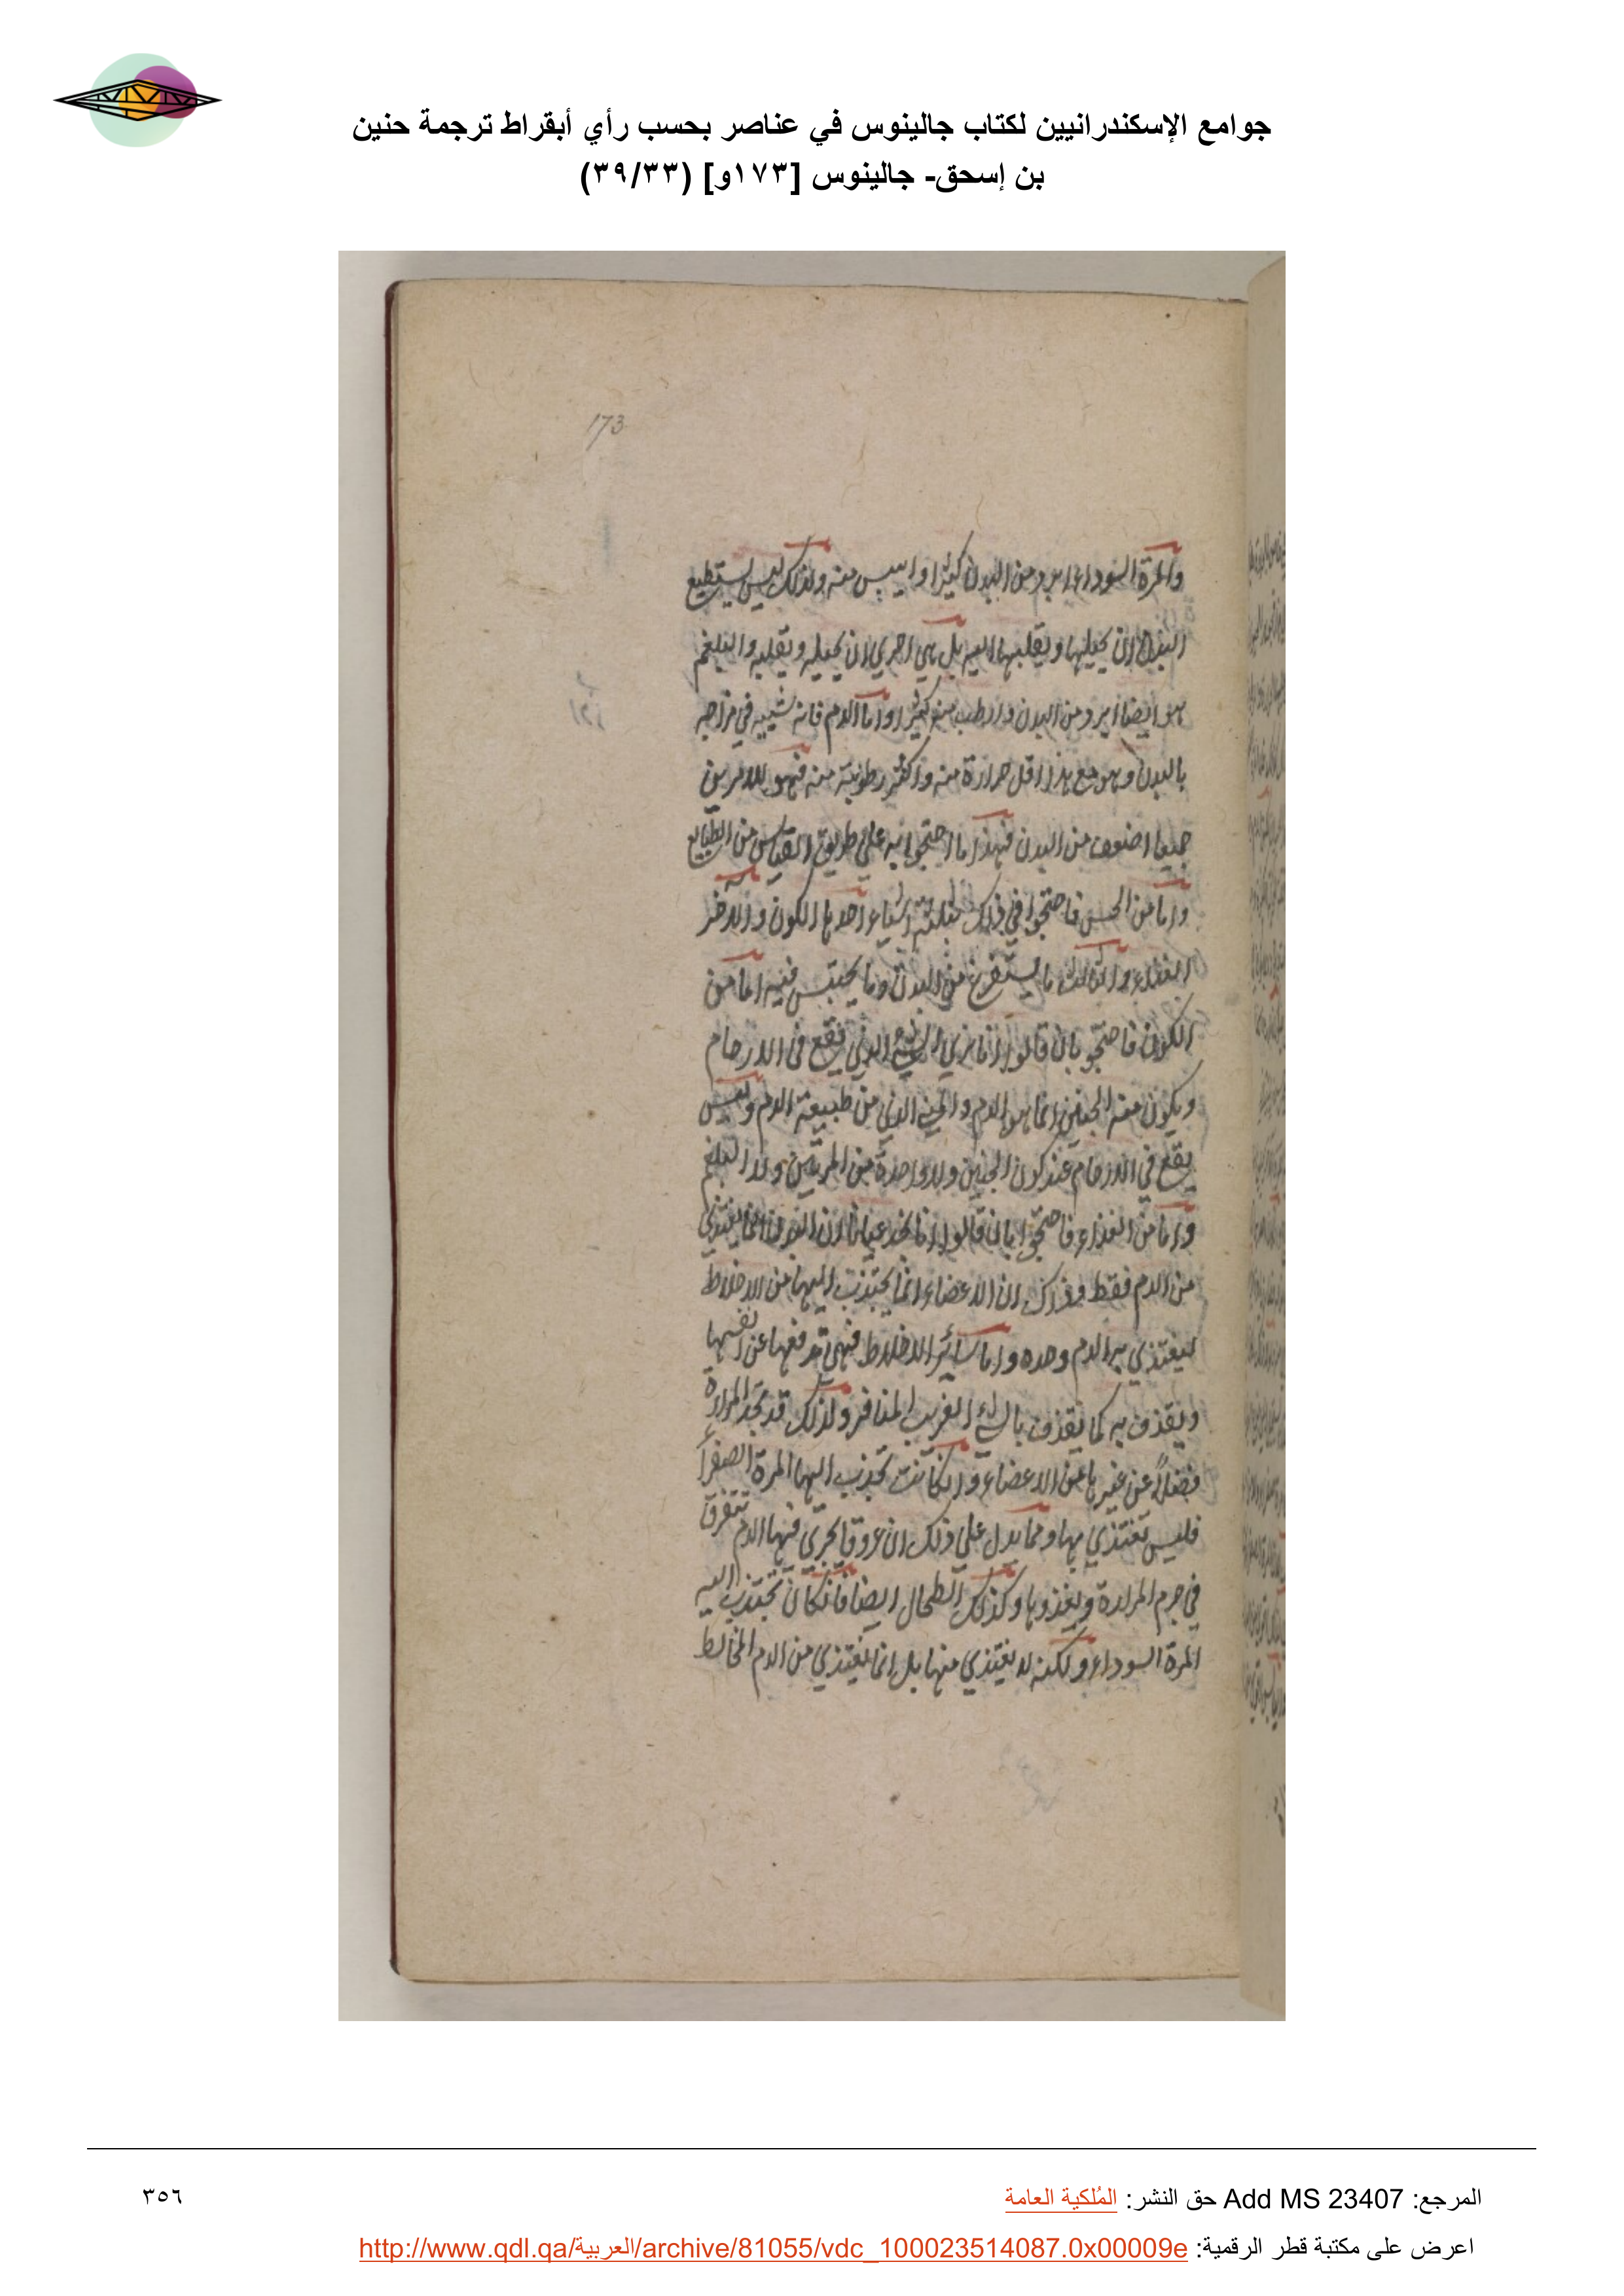 جوامع الإسكندرانيين لكتاب جالينوس في عناصر بحسب رأي أبقراط ترجمة حنين
بن إسحق- جالينوس [١٧٣و] (٣٩/٣٣)
173
والمرة السوداء ابرد من البدن كثيرا وايبس منه ولذلك ليس يستطيع
البدن ان يحيلها ويقلبها اليه بل هي احري ان تحيله وتقلبه والبلغم
هو ايضا ابرد من البدن وارطب منه كثيرا واما الدم فانه شبيه في مزاجه
بالبدن وهو مع هذا اقل حرارة منه واكثر رطوبة منه فهو للامرين
جميعا اضعف من البدن فهذا ما احتجوا به علي طريق القياس من الطبايع
واما من الحس فاحتجوا في ذلك بثلثة اشياء احدها الكون والاخر
الغذاء والثالث ما يستفرغ من البدن وما يحتبس فيه اما من
الكون فاحتجو بان قالوا انا نري الشي الذي يقع في الارحام
ويكون منه الجنين انما هو الدم والمني الذي من طبيعة الدم وليس
يقع في الارحام عند كون الجنين ولا واحدة من المرتين ولا البلغم
واما من الغذاء فاحتجوا بان قالوا انا نجد عيانا ان البدن انما يغتذي
من الدم فقط وذلك ان الاعضاء انما يجتذب اليها من الاخلاط
ليغتذي به الدم وحده واما سائر الاخلاط فهي تدفعها عن انفسها
ويقذف به كما يقذف بالشي الغريب المنافر ولذلك قد تجد المرارة
فضلاً عن غيرها من الاعضاء وان كانت تجذب اليها المرة الصفراء
فليس تغتذي بها ومما يدل علي ذلك ان عروقا تجري فيها الدم تتفرق
في جرم المرارة ويغذوها وكذلك الطحال ايضا فانه كان تجتذب اليه
المرة السوداء ولكنه لا يغتذي منها بل انما يغتذي من الدم المخالط
المرجع: Add MS 23407 حق النشر: المُلكية العامة
٣٥٦
اعرض على مكتبة قطر الرقمية: http://www.qdl.qa/العربية/archive/81055/vdc_100023514087.0x00009e